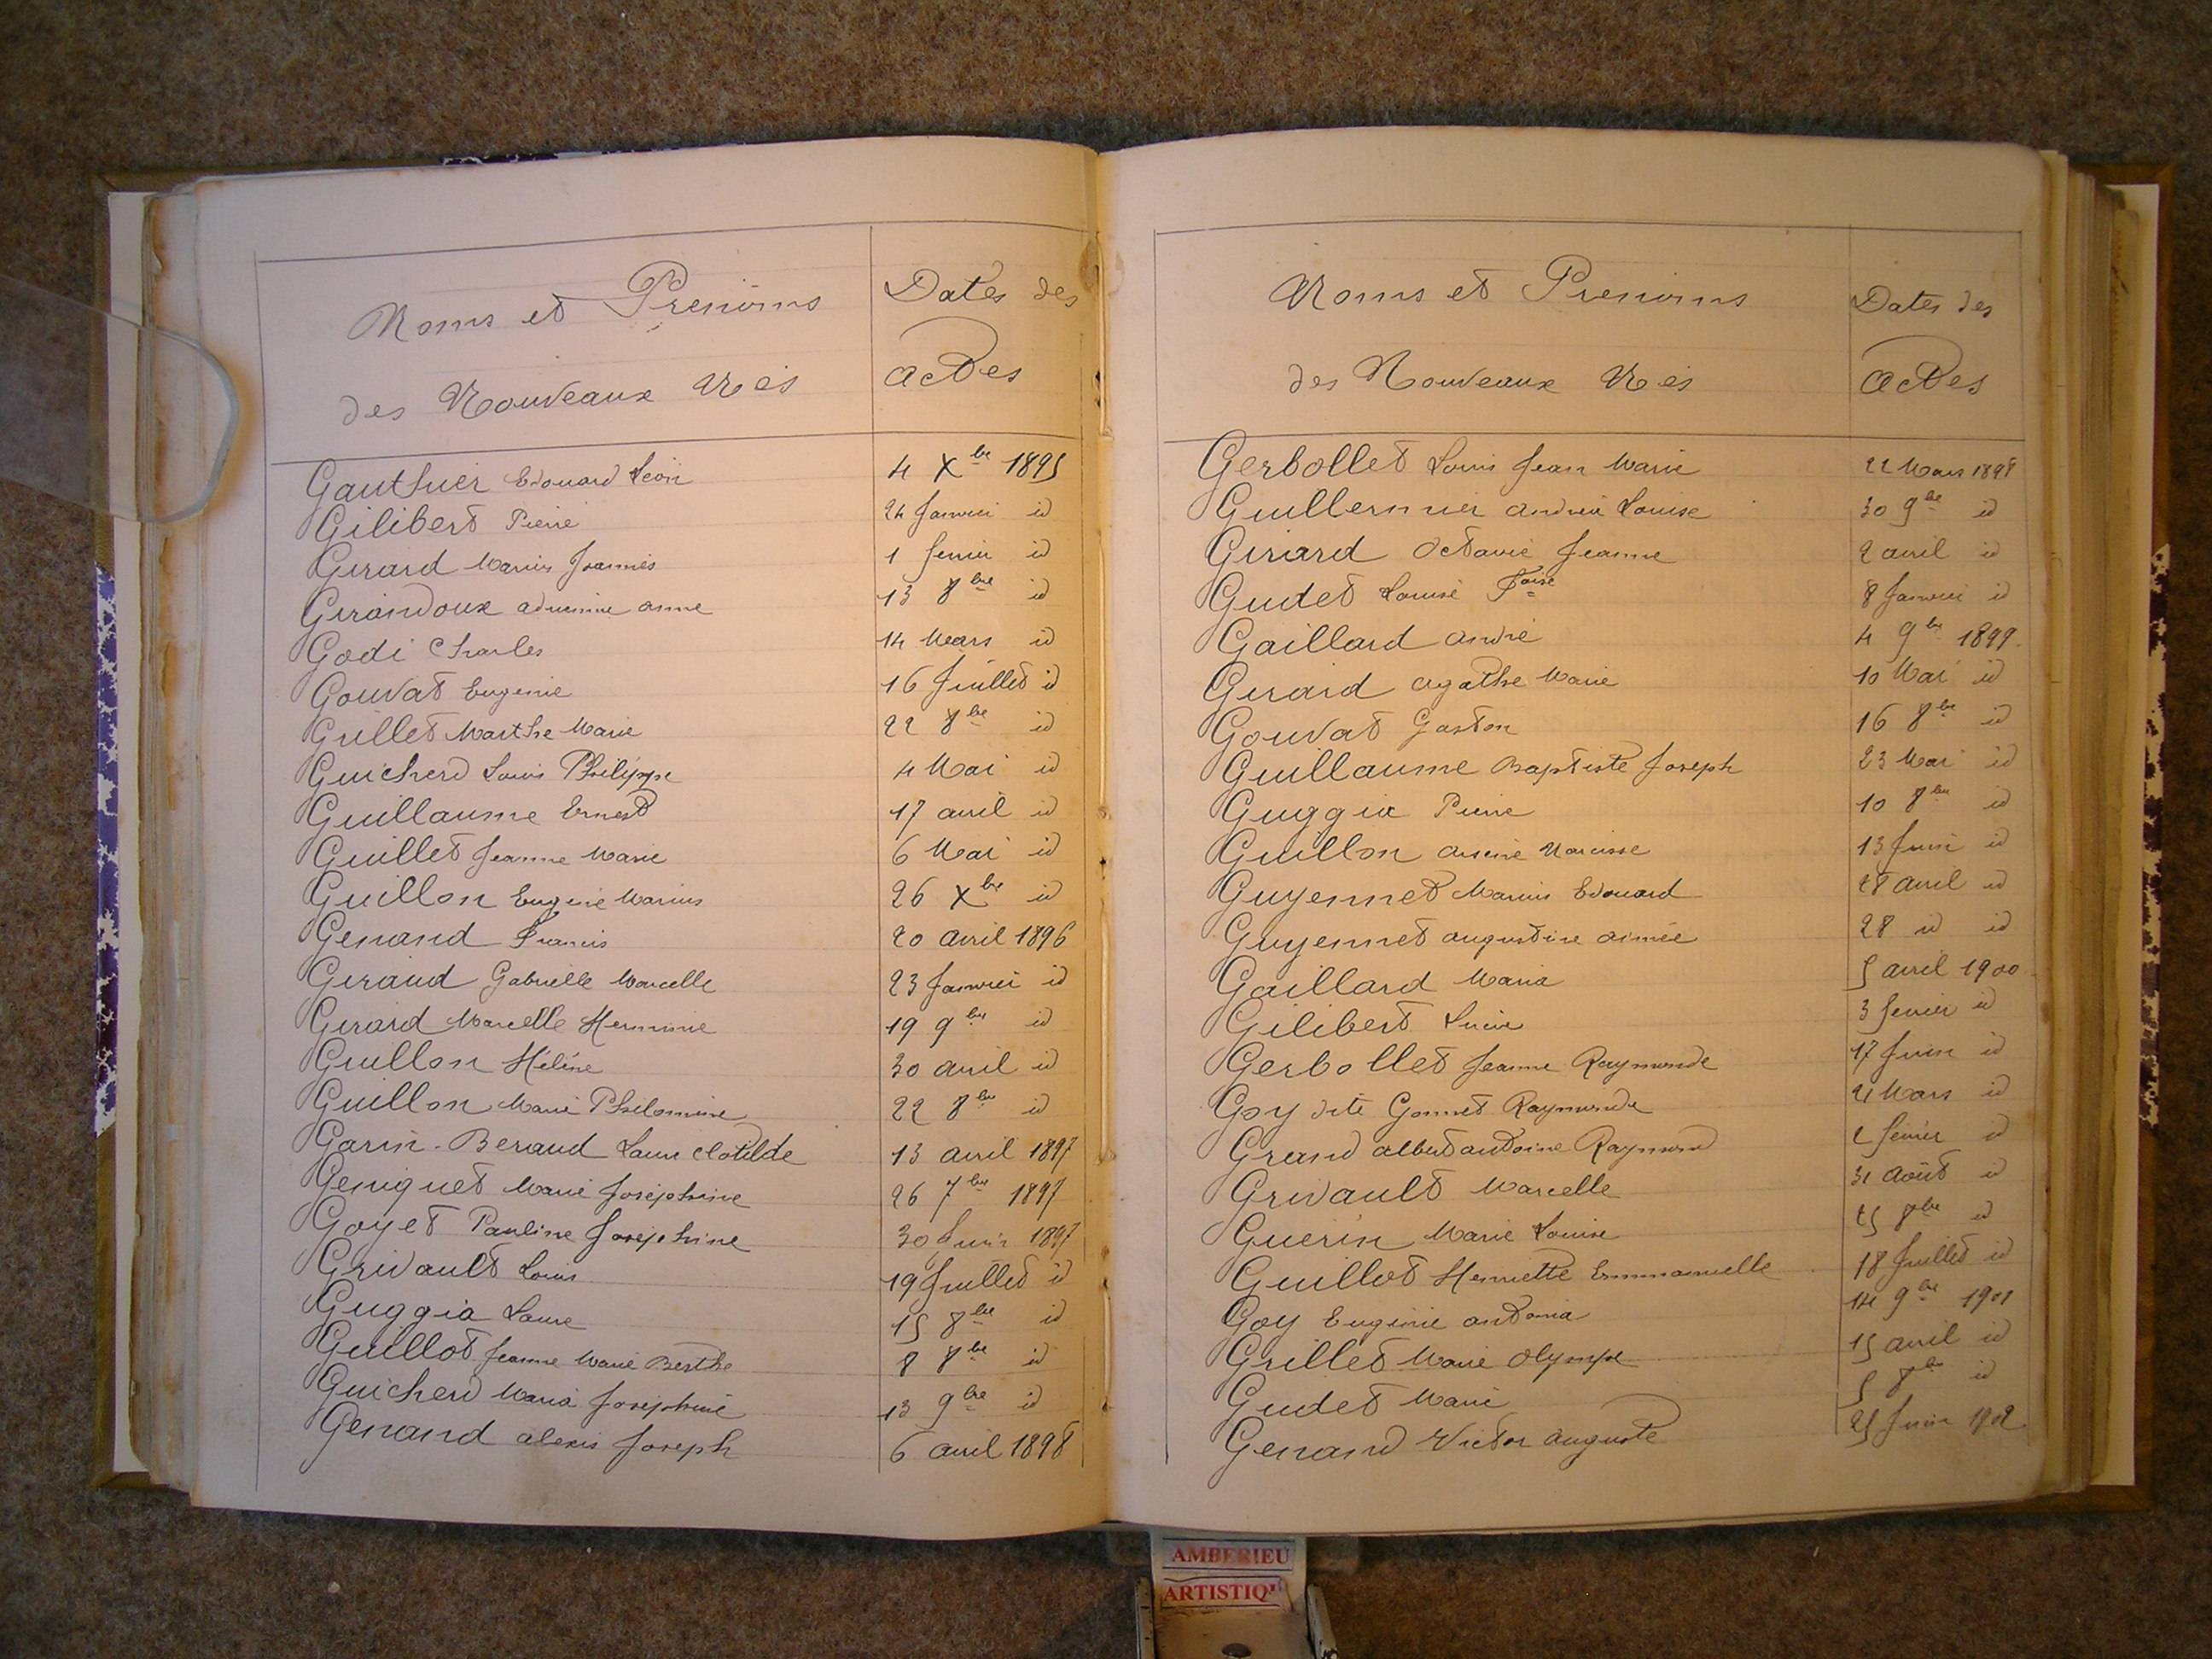 Noms et Prenoms
des Nouveaux Nés
Dates des
actes
Gauthier Edouard Léon 4 Xbre 1895
Gilibert Pierre 24 Janvier id
Gerard Marius Joannès 1 fevrier id
Girandoux adrienne anne 13 8bre id
Godi Charles 14 Mars id
Gouvat Eugenie 16 Juillet id
Grillet Marthe Marie 22 8bre id
Guicherd Louis Philippe 4 Mai id
Guillaume Ernest 17 avril id
Guillet Jeanne Marie 6 Mai id
Guillon Eugène Marius 26 Xbre id
Genand Francis 20 avril 1896
Geraud Gabrielle Marcelle 23 Janvier id
Gerard Marcelle Hermine 19 9bre id
Guillon Hélène 30 avril id
Guillon Marie Philomène 22 8bre id
Garin-Beraud Laure Clotilde 13 avril 1897
Geniquet Marie Joséphine 26 7bre 1897
Goyet Pauline Joséphine 30 Juin 1897
Grivault Louis 19 Juillet id
Guggia Laure 15 8bre id
Guillot Jeanne Marie Berthe 8 8bre id
Guicherd Maria Joséphine 13 9bre id
Genand alexis Joseph 6 avril 1898
Noms et Prenoms
des Nouveaux Nés
Dates des
actes
Gerbollet Louis Jean Marie 22 Mars 1898
Guillermier andrée Louise 30 9bre id
Girard Octavie Jeanne 2 avril id
Gudet Louise Foise 8 Janvier id
Gaillard andré 4 9bre 1899.
Gerard agathe Marie 10 Mai id
Gouvat Gaston 16 8bre id
Guillaume Baptiste Joseph 23 Mai id
Guggia Pierre 10 8bre id
Guillon arsène Narcisse 13 Juin id
Guyennet Marius Edouard 28 avril id
Guyennet augustine aimée 28 id id
Gaillard Maria 5 avril 1900
Gilibert Lucie 3 fevrier id
Gerbollet Jeanne Raymonde 17 Juin id
Goy dite Gonnet Raymonde Mars id
Grand albert antoine Raymond 2 février id
Grivault Marcelle 31 août id
Guerin Marie Louise 25 8bre id
Guillot Henriette Emmanuelle 18 Juillet id
Goy Eugénie antonia 14 9bre 1901
Grillet Marie Olympe 15 avril id
Gudet Marie 5 8bre id
Genand Victor auguste 25 Juin 1902
AMBERIEU
ARTISTIQ